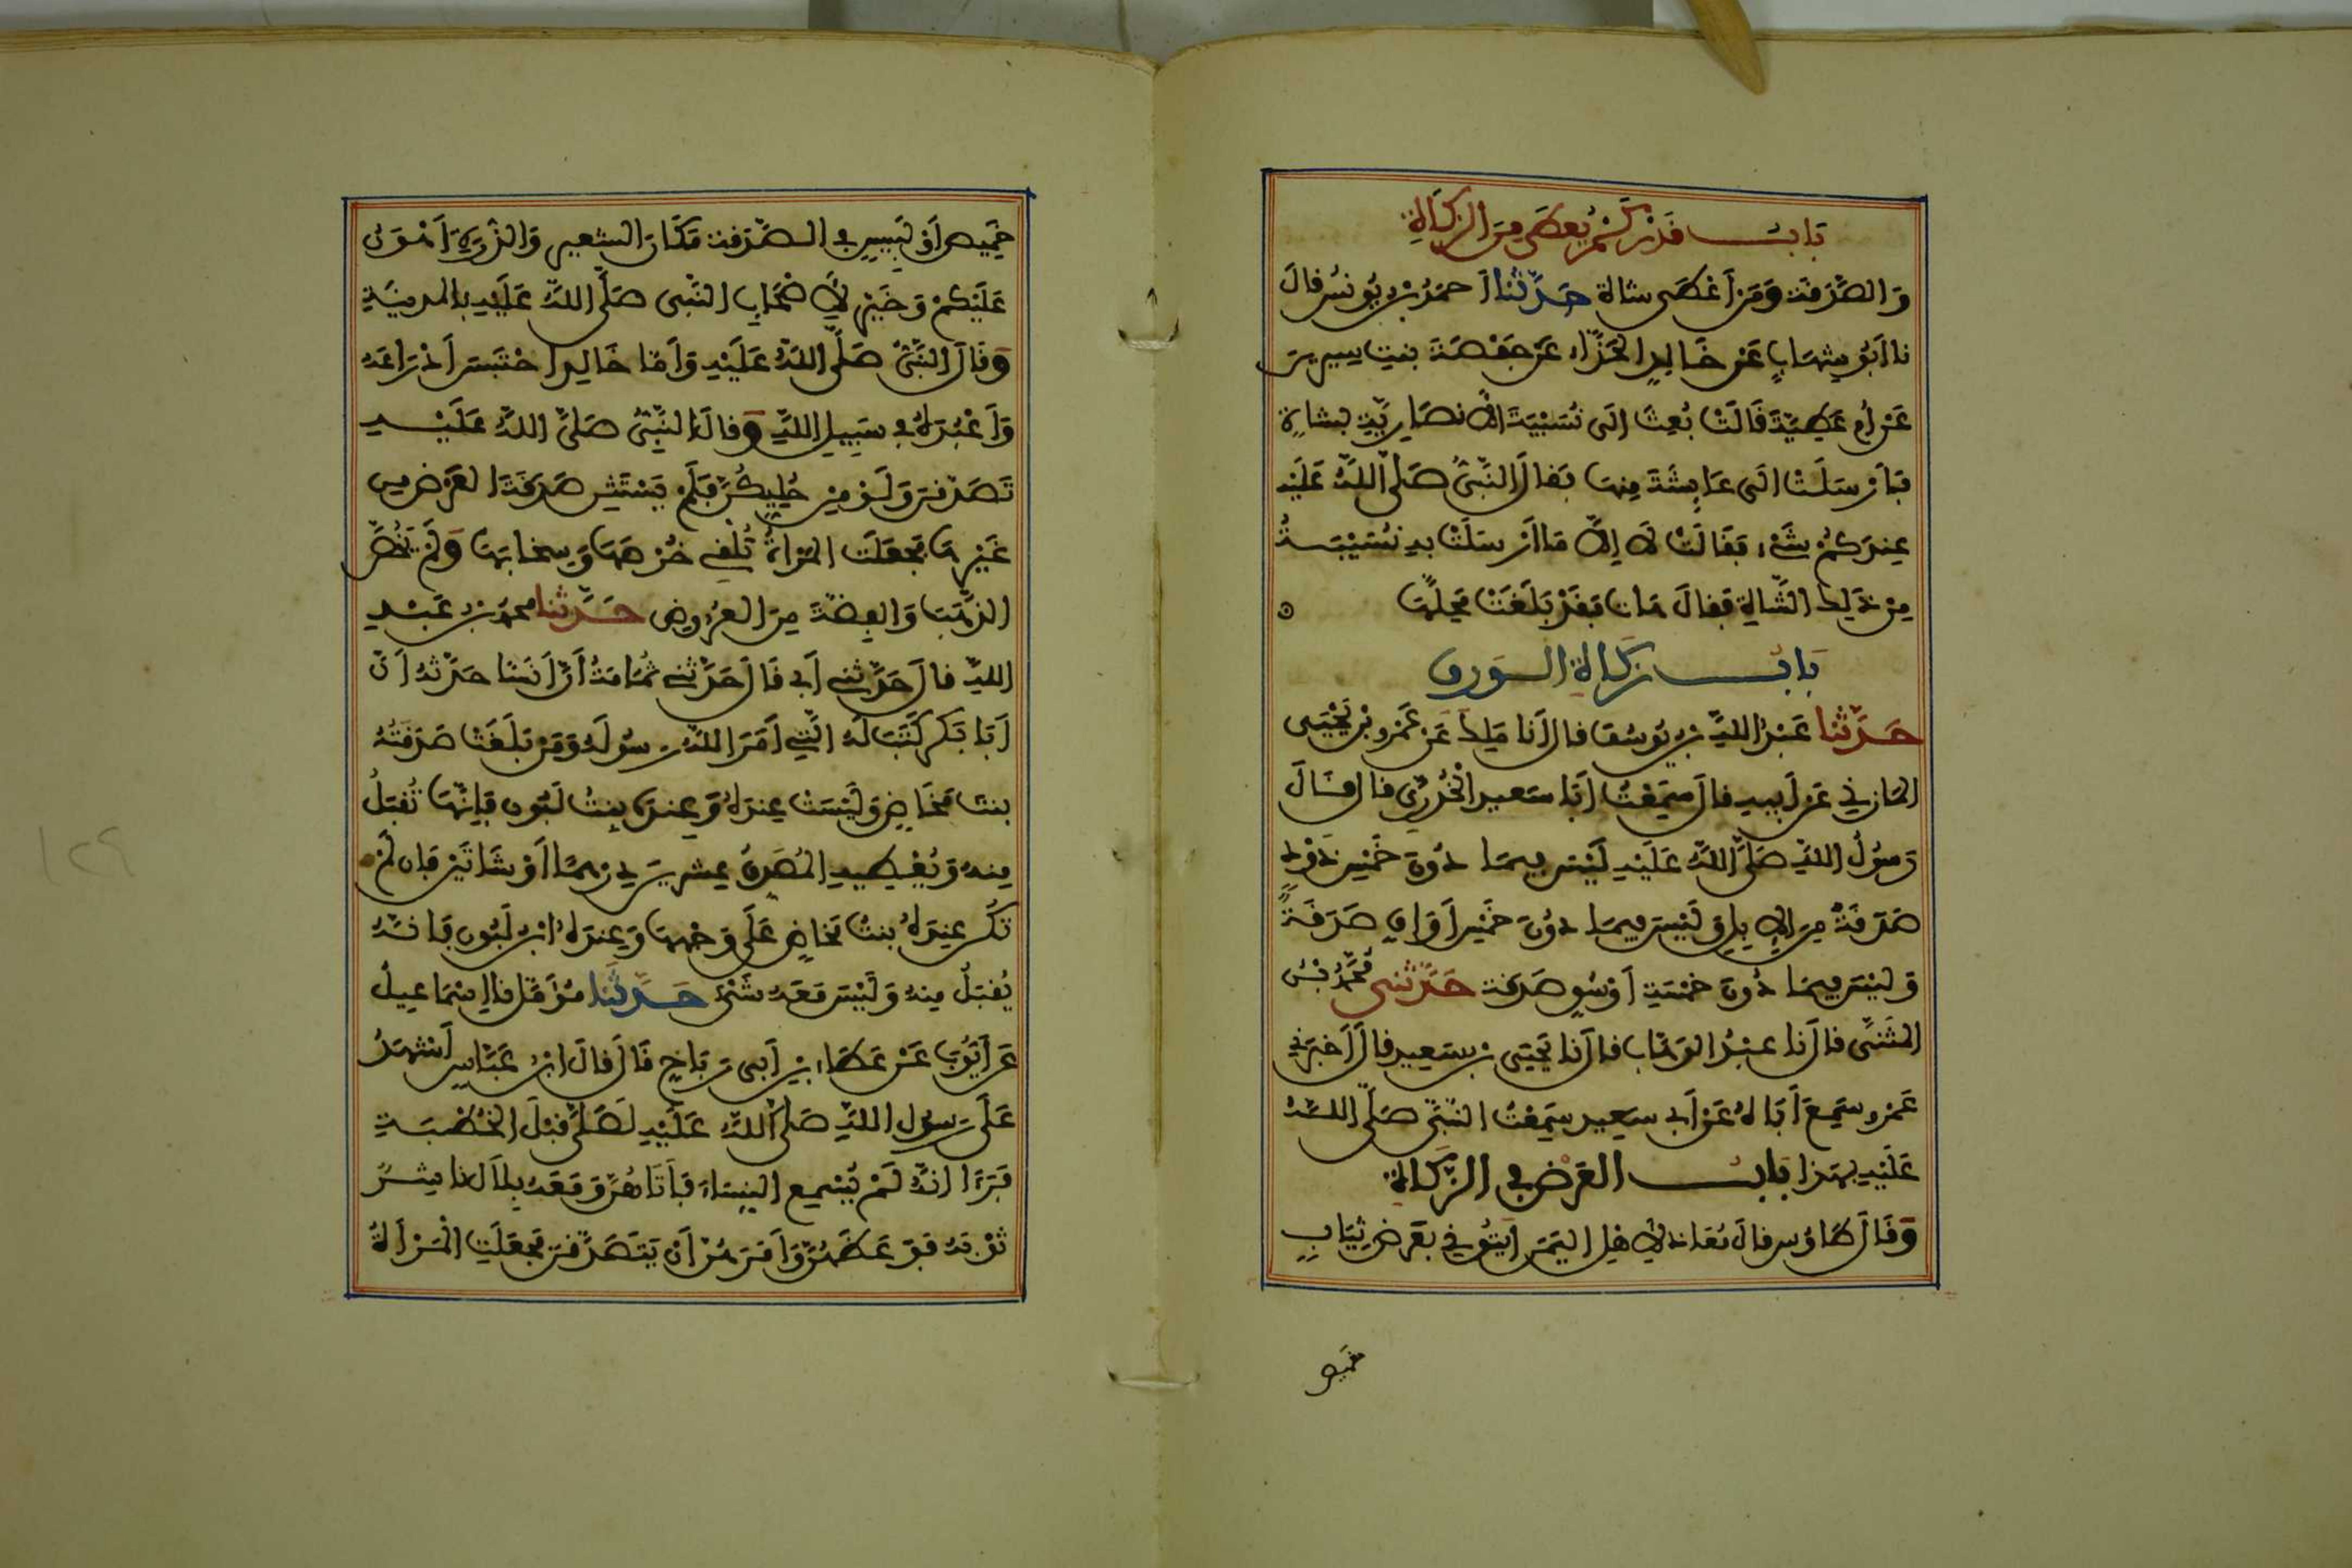 بَابُ قَدْرِ كَمْ يُعْطَى مِنَ الزَّكَاةِ
وَالصَّدَقَة وَمَنْ أَعْطَى شاةً حَدَّثَنَا أَحمَدُ بْنُ يُونُسَ قالَ
نا أَبُو شِهَابٍ عَنْ خَالِدٍ الحَذَّاء عَنْ حَفْصَةَ بنتِ سيرِينَ
عَنْ أُمِّ عَطِيَّةَ قَالَتْ بُعِثَ إلَى نُسَيْبَةَ الأَنصَارِيَّةِ بشَاةٍ
فَأَرْسَلَتْ إلَى عَائِشَةَ مِنهَا فَقالَ النَّبِيُّ صَلَّى اللَّهُ عَلَيْه
عِندَكُمْ شَيْء فَقَالَتْ لَا إلَّا مَا أَرْسَلَتْ به نُسَيْبَةُ
مِنْ ذَلِكَ الشَّاةِ فَقالَ هَاتِ فَقَدْ بَلَغَتْ مَحِلَّهَا
بَابُ زَكَاةِ الوَرِق
حَدَّثَنَا عَبْدُ اللَّهِ بْنُ يُوسُفَ قال أَنا مَلِك عَن عَمْرِو بْنِ يَحْيَى
المَازِنِي عَن أَبِيهِ قال سَمِعْتُ أَبَا سَعِيد الْخُدْرِيّ قال قَالَ
رَسُولُ اللَّهِ صَلَّى اللَّهُ عَلَيْهِ لَيْسَ فِيمَا دُونَ خَمْسِ ذَوْدٍ
صَدَقَةٌ مِنَ الإِبِلِ وَلَيْسَ فِيمَا دُونَ خَمْسِ أَوَاقٍ صَدَقَةٌ
وَلَيْسَ فِيمَا دُونَ خَمْسَةِ أَوْسُقٍ صَدَقة حَدَّثَنِي مُحَمَّدُ بْنُ
المُثَنَّى قال نا عَبْدُ الوَهَّاب قال نا يَحْيَى بْنُ سَعِيدٍ قال أَخْبَرَنِي
عَمْرو سَمِعَ أَبَاهُ عَنْ أَبِي سَعِيد سَمِعْتُ النَّبِيَّ صَلَّى اللَّهُ
عَلَيْهِ بِهَذا بَابُ العَرْضِ فِي الزَّكَاةِ
وَقَالَ طَاوُس قالَ مُعَاذ لأَهْلِ اليَمَنِ ايتُونِي بعَرْضٍ ثِيَابٍ
خميص
خَمِيصٍ أَوْ لَبِيسٍ فِي الصَّدَقَة مَكَانَ الشَّعِير وَالذُّرَةِ أَهْوَنُ
عَلَيْكُمْ وَخَيْرٌ لأَصْحَابِ النَّبِي صَلَّى اللَّهُ عَلَيْهِ بِالمَدِينَةِ
وَقَالَ النَّبِيُّ صَلَّى اللَّهُ عَلَيْهِ وَأَمَّا خَالِد احْتَبَسَ أَدْرَاعَهُ
وَأَعْبُدَهُ فِي سَبِيلِ اللَّهِ وَقالَ النَّبِيُّ صَلَّى اللَّهُ عَلَيْهِ
تَصَدَّقْنَ وَلَوْ مِنْ حُلِيِّكُنَّ فَلَمْ يَسْتَثْنِ صَدَقَةَ العَرْضِ مِن
غَيْرِهَا فَجَعَلَتِ المَرْأَةُ تُلْقِي خُرْصَهَا وَسِخَابَهَا وَلَمْ يَخُصَّ
الذَّهَبَ وَالفِضَّةَ مِنَ العُرُوضِ حَدَّثَنَا محمدُ بْنُ عَبْدِ
اللَّهِ قال حَدَّثَنِي أَبِي قَالَ حَدَّثَنِي ثُمَامَةُ أَنَّ أَنَسًا حَدَّثَهُ أَنَّ
أَبَا بَكْر كَتَبَ لَهُ الَّتِي أَمَرَ اللَّهُ رَسُولَهُ وَمَنْ بَلَغَتْ صَدَقَتُهُ
بِنتَ مَخَاضٍ وَلَيْسَتْ عِندَهُ وَعِندَهُ بِنتُ لَبُون فَإِنَّهَا تُقْبَلُ
مِنهُ وَيُعْطِيهِ المُصَدِّقُ عِشْرِينَ دِرْهَمًا أَوْ شَاتَيْنِ فَإن لَمْ
تَكُن عِندَهُ بِنتُ مَخَاضٍ عَلَى وَجْهِهَا وَعِندَهُ ابْنُ لَبُون فَإنَّهُ
يُقْبَلُ مِنهُ وَلَيْسَ مَعَهُ شَيْءٌ حَدَّثَنَا مُؤَمَّل نا إِسْمَاعِيلُ
عَن أَيُّوبَ عَنْ عَطَاءِ بْنِ أَبِي رَبَاحٍ قَالَ قالَ ابْنُ عَبَّاسٍ أَشْهَدُ
عَلَى رَسُولِ اللَّهِ صَلَّى اللَّهُ عَلَيْهِ لَصَلَّى قَبْلَ الخُطْبَةِ
فَرَءَا أنَّهُ لَمْ يُسْمِعِ النِّسَاءَ فَأَتَاهُنَّ وَمَعَهُ بِلَال نَاشِرُ
ثَوْبِهِ فَوَعَظَهُنَّ وَأَمَرَهُنَّ أَنْ يَتَصَدَّقْنَ فَجَعَلَتِ الْمَرْأَةُ
١٢٩